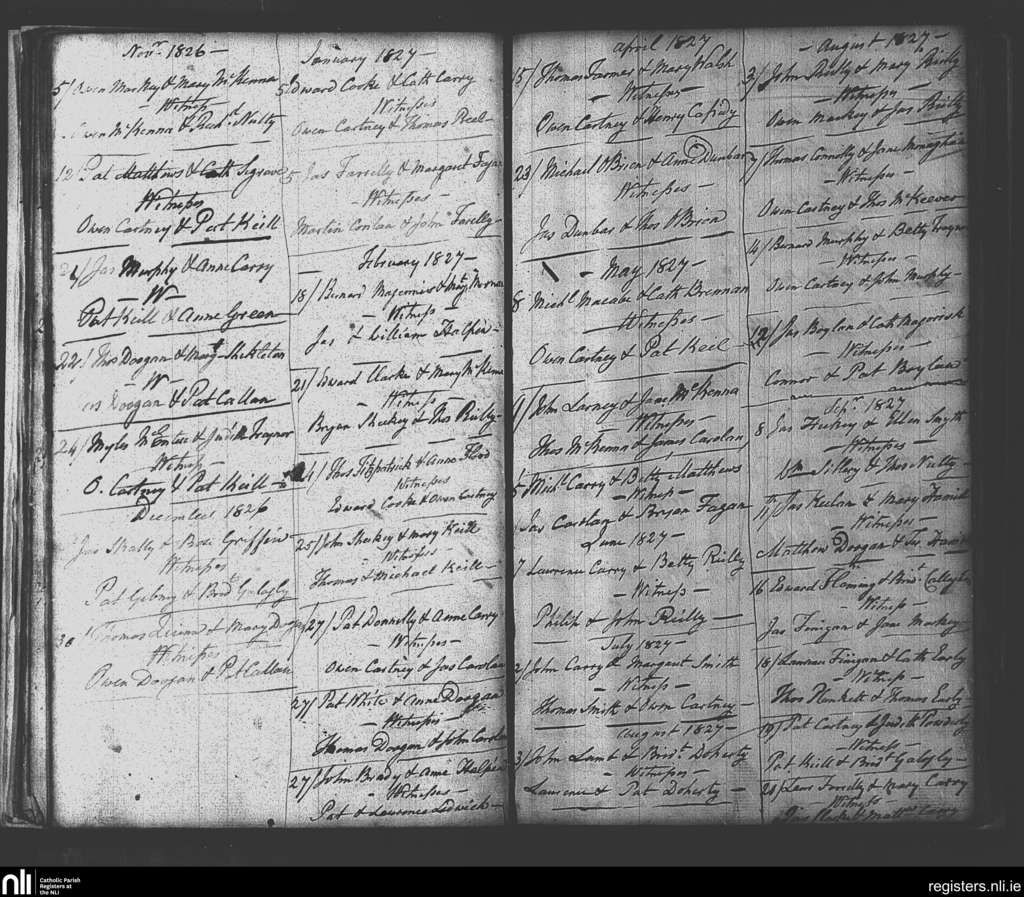 Novr. 1826 —
5/ Owen Mackey & Mary McKenna
— Witness —
Owen McKenna & Richd. Nulty
12/ Pat Matthews & Cath Segrave
Witnesses
Owen Cartney & Pat Keill
21/ Jas Murphy & Anne Carry
— W —
Pat Keill & Anne Green
22/ Thos Doogan & Mary Shekleton
— W —
Doogan & Pat Callan
24/ Myles McEntee & Judith Traynor
Witness —
O. Cartney & Pat Keill —
December 1826
Jas Skally & Rose Griffin —
Witnesses
Pat Gebny & Bridt Galagly
30 Thomas Quinn & Mary
Witnesses
Owen Doogan & Pat Callan
January 1827 —
5 Edward Cooke & Cath Carry
Witnesses
Owen Cartney & Thomas Keel —
5 Jas Farrelly & Margaret Fagan
— Witnesses
Martin Conlan & John Farelly —
February 1827 —
18/ Bernard & Mary
— Witness
Jas & William Halpin —
21/ Edward Clarke & Mary McKenna
— Witness —
Bryan Sheekey & Thos Reily —
24/ Thos Fitzpatrick & Anne Flood
Witnesses
Edward Cooke & Owen Cartney
25/ John Sheekey & Mary Keill
— Witnesses —
Thomas & Michael Keill —
27/ Pat Donnelly & Anne Carry
— Witnesses —
Owen Cartney & Jas Carolan
27/ Pat White & Anne Doogan
— Witnesses —
Thomas Doogan & John Carolan
27/ John Brady & Anne Halpin
— Witnesses —
Pat & Laurence Ledwich —
April 1827
15/ Thomas Farmer & Mary Walsh
— Witness —
Owen Cartney & Henry Casidy
23/ Michael OBrien & Anne Dunbar
Witness —
Jas Dunbar & Thos OBrien
— May 1827 —
8 Michl. Macabe & Cath Brennan
— Witnesses —
Owen Cartney & Pat Keel —
9/ John Larney & Jane McKenna
— Witnesses —
Thos McKenna & James Carolan
5/ Michl. Carry & Betty Matthews
— Witness —
Jas Carolan & Bryan Fagan
June 1827 —
7 Lawrence Carry & Betty Reilly
— Witness —
Philip & John Reilly —
July 1827 —
2/ John Carry & Margaret Smith
— Witness —
Thomas Smith & Owen Cartney —
August 1827 —
3/ John Lamb & Bridt. Doherty
— Witnesses —
Lawrence & Pat Doherty —
— August 1827 —
3/ John Reilly & Mary Reilly
— Witnesses —
Owen Mackey & Jas Reilly
7/ Thomas Connolly & Jane Monaghan
— Witnesses —
Owen Cartney & Thos McKeever
4/ Bernard Murphy & Betty Traynor
— Witnesses —
Owen Cartney & John Murphy —
12/ Jas Boylan & Cath
— Witnesses —
Connor & Pat Boylan
Sepr. 1827
8 Jas & Ellen Smyth
— Witnesses —
Wm & Thos Nulty —
11/ Jas Keelan & Mary
— Witnesses —
Matthew Doogan & Jas
16 Edward Flaming & Bridt. Callaghan
— Witness —
Jas Finigan & Jane Mackey
18/ Laurence Finigan & Cath Early
— Witness —
Thos Plunkett & Thomas Early
19/ Pat Cartney & Judith
— Witness —
Pat Keill & Bridt Galagly —
28/ Laur Farrelly & Mary Carry
— Witness —
Jas & Matt Carry
nli
Catholic Parish
Registers at
the NLI
registers.nli.ie